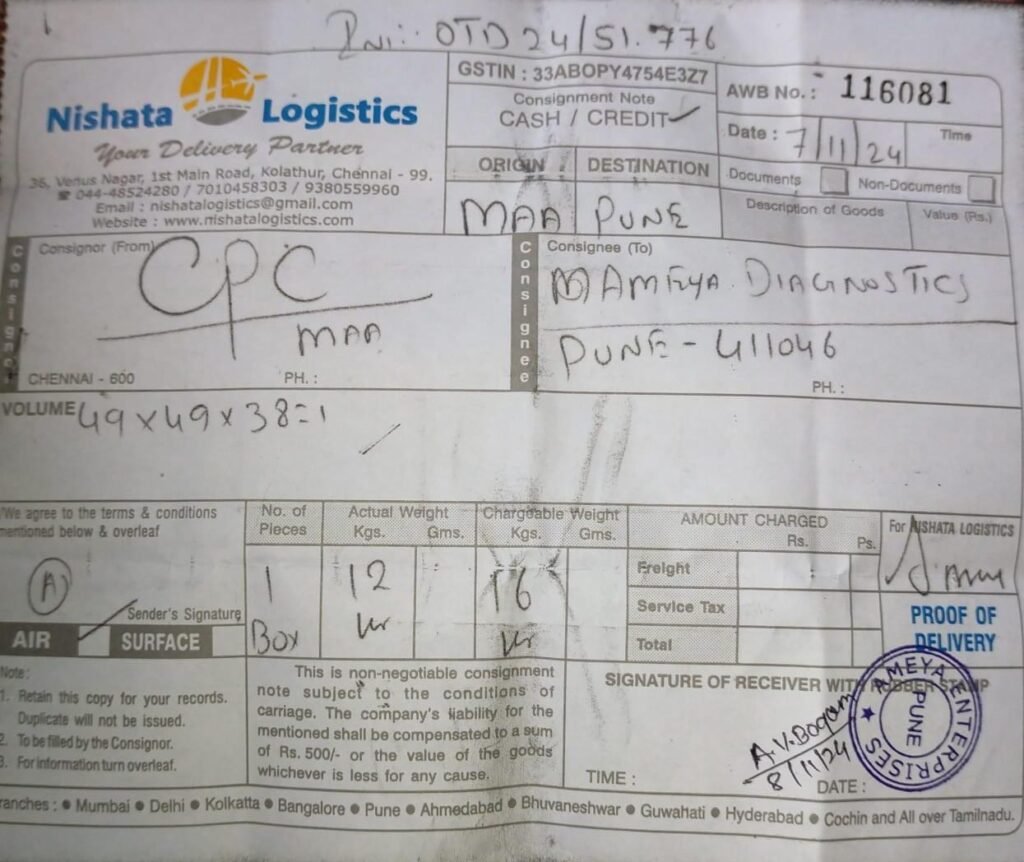 Inv:- OTD 24/51.776
Nishata Logistics
Your Delivery Partner
36, Venus Nagar, 1st Main Road, Kolathur, Chennai - 99.
☎ 044-48524280 / 7010458303 / 9380559960
Email : nishatalogistics@gmail.com
Website : www.nishatalogistics.com
GSTIN : 33ABOPY4754E3Z7
Consignment Note
CASH / CREDIT ✓
AWB No. : 116081
Date : 7/11/24 Time
ORIGIN DESTINATION
MAA PUNE
Documents Non-Documents
Description of Goods Value (Rs.)
Consignor
Consignor (From)
CPC
MAA
CHENNAI - 600 PH. :
Consignee
Consignee (To)
AMEYA DIAGNOSTICS
PUNE - 411046
PH. :
VOLUME 49x49x38=1
We agree to the terms & conditions
mentioned below & overleaf
(A)
Sender's Signature
AIR ✓ SURFACE
No. of Pieces
1
Box
Actual Weight
Kgs. Gms.
12
Chargeable Weight
Kgs. Gms.
16
AMOUNT CHARGED
Rs. Ps.
Freight
Service Tax
Total
For NISHATA LOGISTICS
PROOF OF
DELIVERY
Note :
1. Retain this copy for your records.
Duplicate will not be issued.
2. To be filled by the Consignor.
3. For information turn overleaf.
This is non-negotiable consignment
note subject to the conditions of
carriage. The company's liability for the
mentioned shall be compensated to a sum
of Rs. 500/- or the value of the goods
whichever is less for any cause.
SIGNATURE OF RECEIVER WITH RUBBER STAMP
AMEYA ENTERPRISES
★ PUNE
A.V.Bogam
8/11/24
TIME : DATE :
Branches : ● Mumbai ● Delhi ● Kolkatta ● Bangalore ● Pune ● Ahmedabad ● Bhuvaneshwar ● Guwahati ● Hyderabad ● Cochin and All over Tamilnadu.